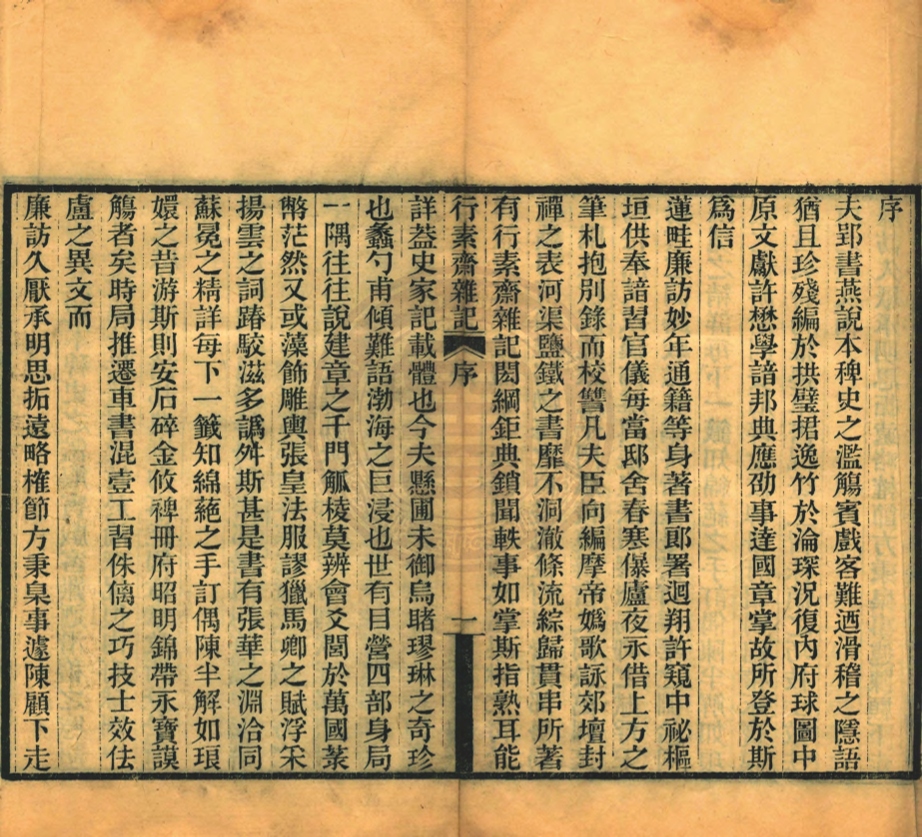 序
夫郢書燕說本稗史之濫觴賓戲客難迺滑稽之隱語
猶且珍殘編於拱璧捃逸竹於淪琛況復內府球圖中
原文獻許懋學諳邦典應劭事達國章掌故所登於斯
爲信
蓮畦廉訪妙年通籍等身著書郎署迴翔許窺中祕樞
垣供奉諳習官儀每當邸舍春寒儤廬夜永借上方之
筆札抱別錄而校讐凡夫臣向編摩帝嬀歌詠郊壇封
禪之表河渠鹽鐵之書靡不洞澈條流綜歸貫串所著
有行素齋雜記閎綱鉅典鎖聞軼事如掌斯指熟耳能
行素齋雜記 序 一
詳葢史家記載體也今夫懸圃未御烏睹璆琳之奇珍
也蠡勺甫傾難語渤海之巨浸也世有目營四部身局
一隅往往說建章之千門觚棱莫辨會叉閭於萬國篆
幣茫然又或藻飾雕輿張皇法服謬獵馬卿之賦浮采
揚雲之詞踳駮滋多譌舛斯甚是書有張華之淵洽同
蘇冕之精詳每下一籤知綿蕝之手訂偶陳半解如琅
嬛之昔游斯則安石碎金攸裨冊府昭明錦帶永寶謨
觴者矣時局推遷車書混壹工習侏儷之巧技士效佉
盧之異文而
廉訪久厭承明思拓遠略榷節方秉臬事遽陳顧下走